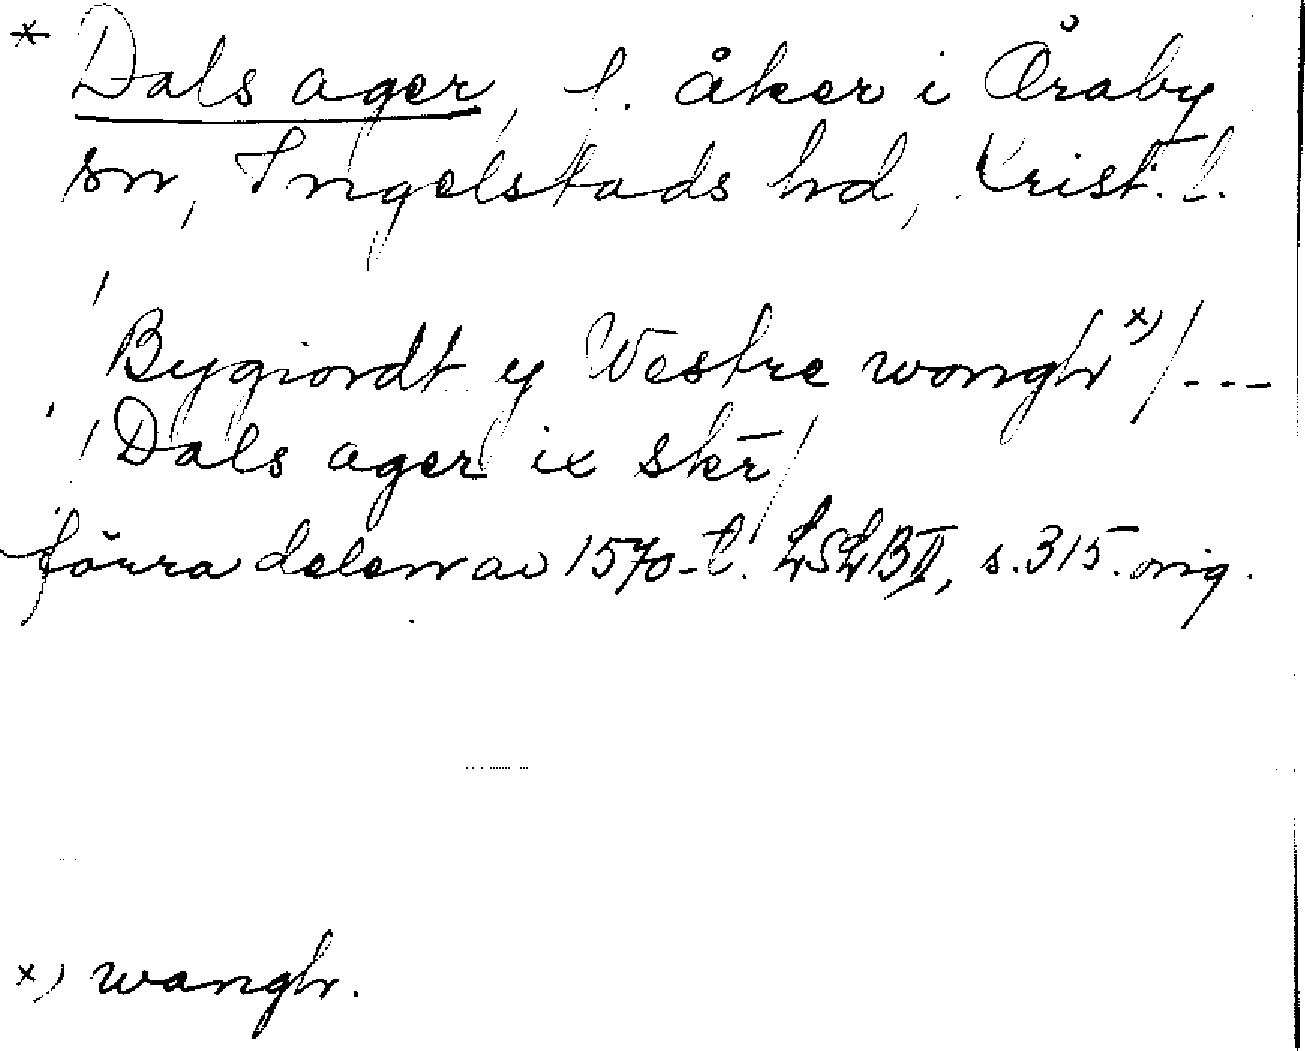 * Dals ager, f. åker i Åraby
sn, Ingelstads hd, Krist. l.
Bygiordt y Westre wongh x) / ---
/ Dals ager ix skr̄ /
förra delen av 1570-t. LSLB II, s. 315. orig.
x) wangh.